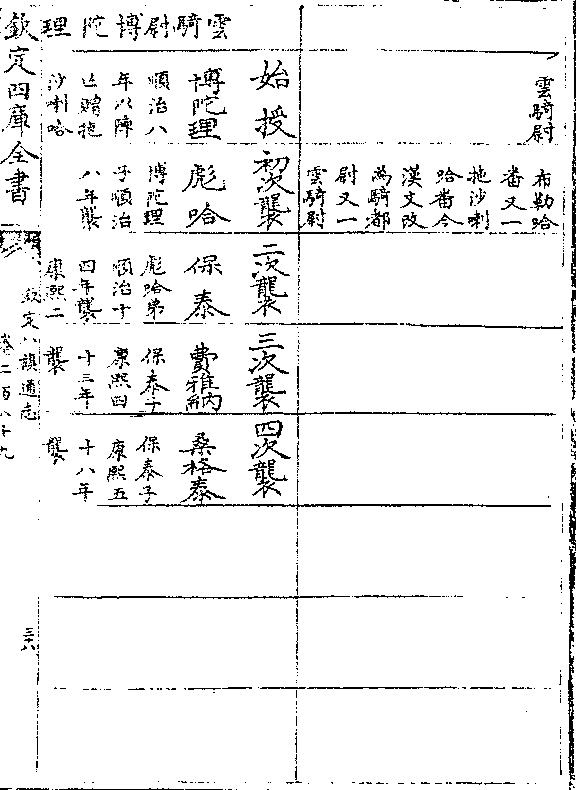 雲騎尉
布勒哈
番又一
拖沙喇
哈番今
漢文改
為騎都
尉又一
雲騎尉
雲騎尉博陀理
始授
博陀理
順治八
年以陣
亡贈拖
沙喇哈
初次襲
彪哈
博陀理
子順治
八年襲
二次襲
保泰
彪哈弟
順治十
四年襲
康熙二
三次襲
費雅納
保泰子
康熙四
十三年
襲
四次襲
桑格泰
保泰子
康熙五
十八年
襲
欽定四庫全書
欽定八旗通志
卷二百八十九